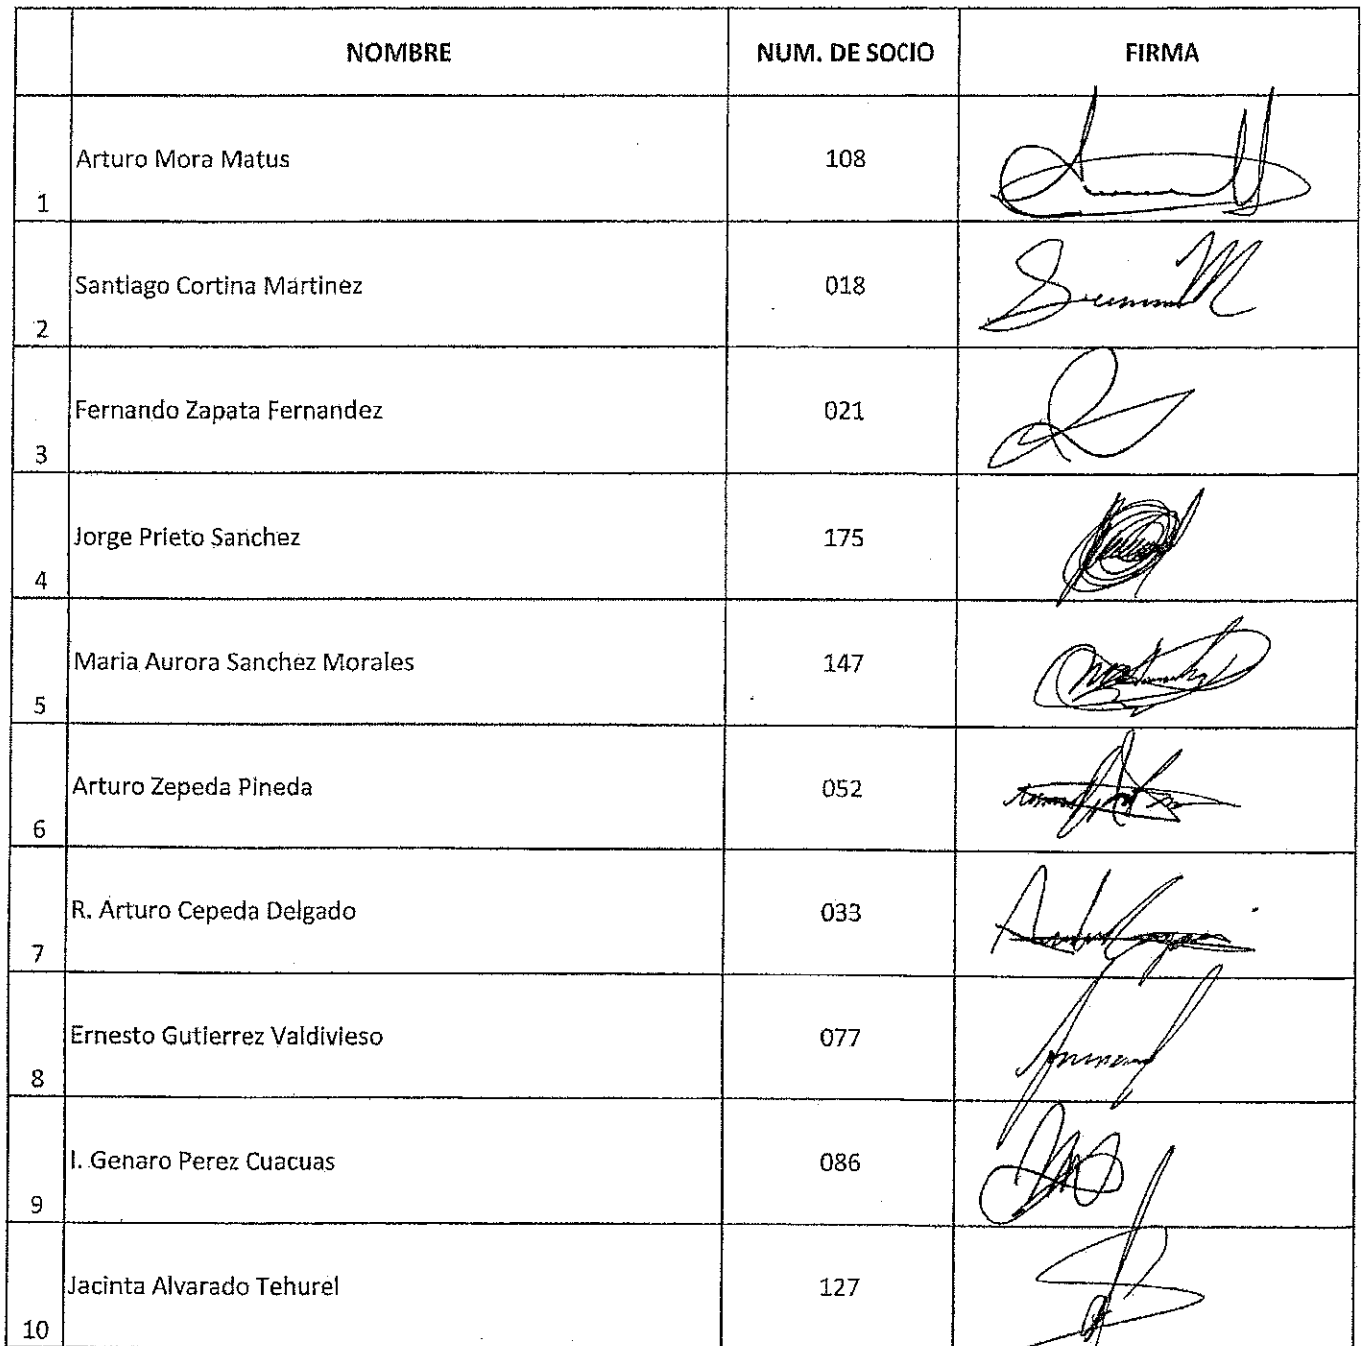 NOMBRE NUM. DE SOCIO FIRMA
1 Arturo Mora Matus 108
2 Santiago Cortina Martinez 018
3 Fernando Zapata Fernandez 021
4 Jorge Prieto Sanchez 175
5 Maria Aurora Sanchez Morales 147
6 Arturo Zepeda Pineda 052
7 R. Arturo Cepeda Delgado 033
8 Ernesto Gutierrez Valdivieso 077
9 I. Genaro Perez Cuacuas 086
10 Jacinta Alvarado Tehurel 127